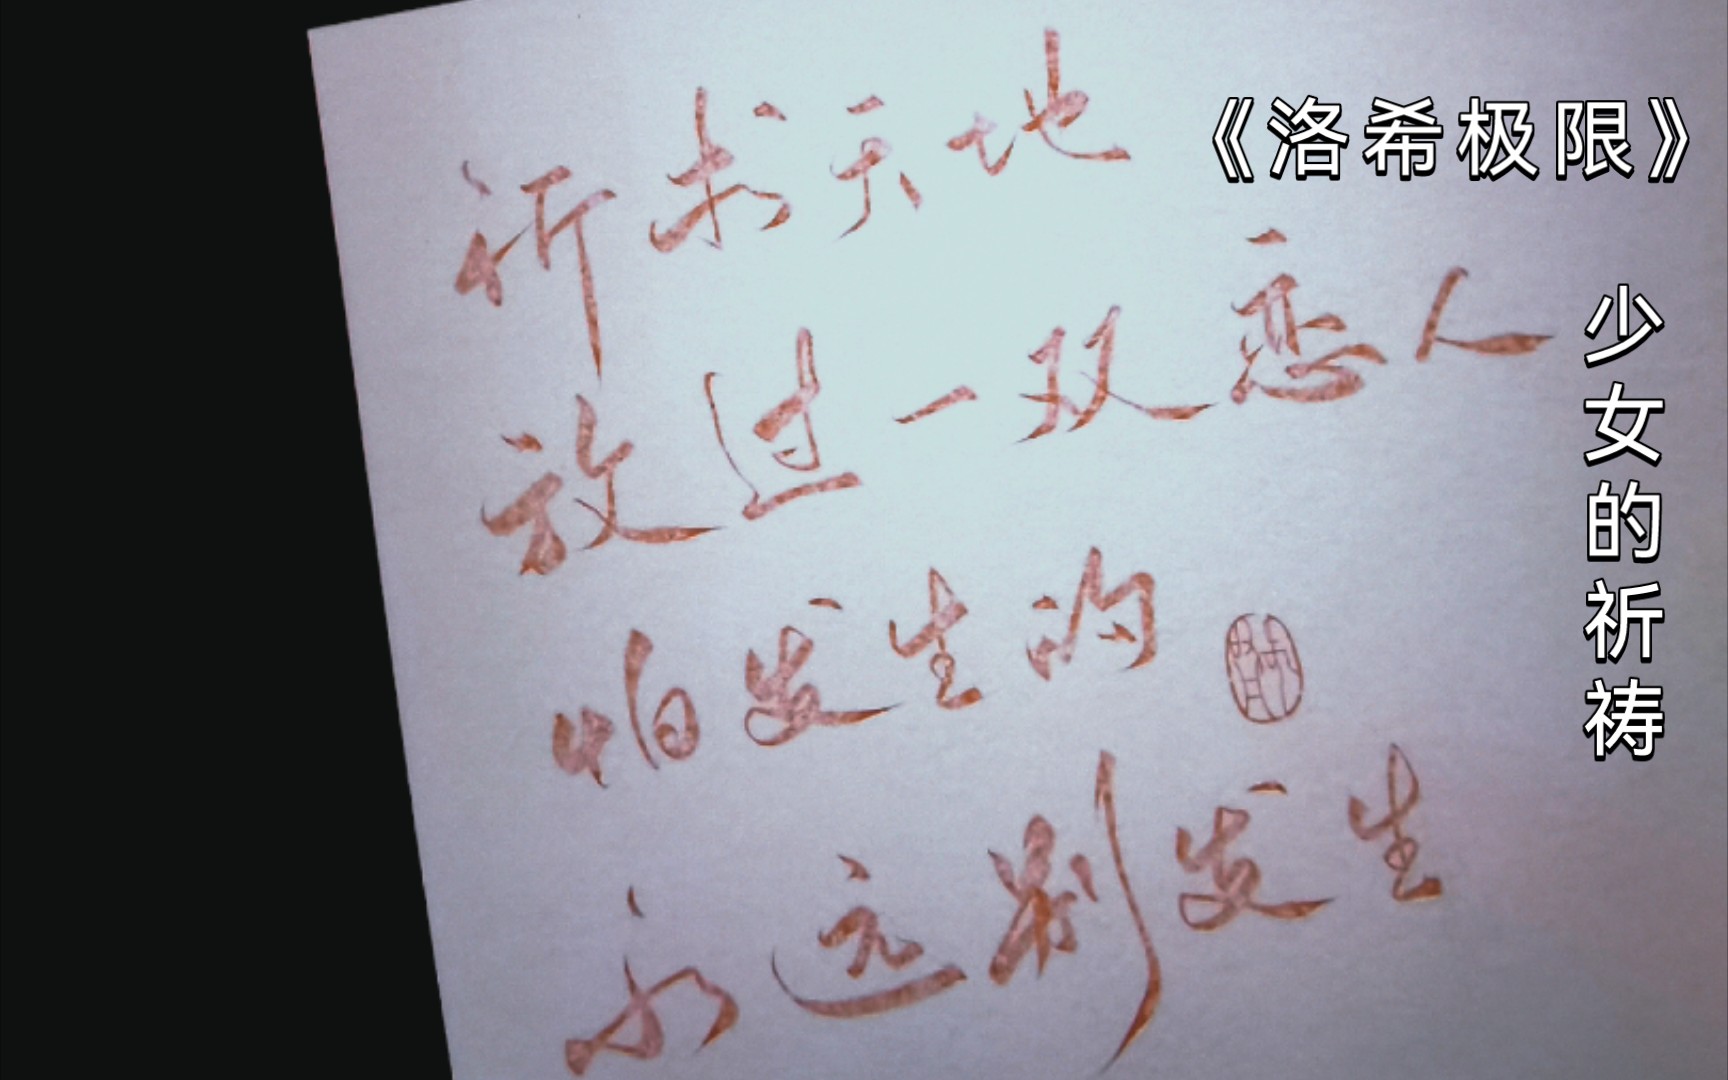 祈求天地
放过一双恋人
怕发生的
永远别发生
《洛希极限》
少女的祈祷